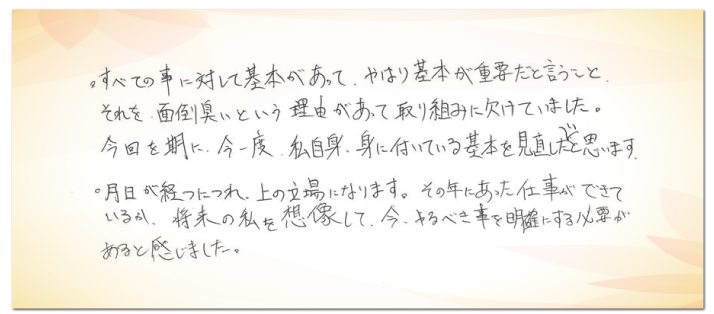 。すべての事に対して基本があって、やはり基本が重要だと言うこと、
それを、面倒臭いという理由があって取り組みに欠けていました。
今回を期に、今一度、私自身、身に付いている基本を見直したいと思います。
。月日が経つにつれ、上の立場になります。その年にあった仕事ができて
いるか、将来の私を想像して、今、やるべき事を明確にする必要が
あると感じました。